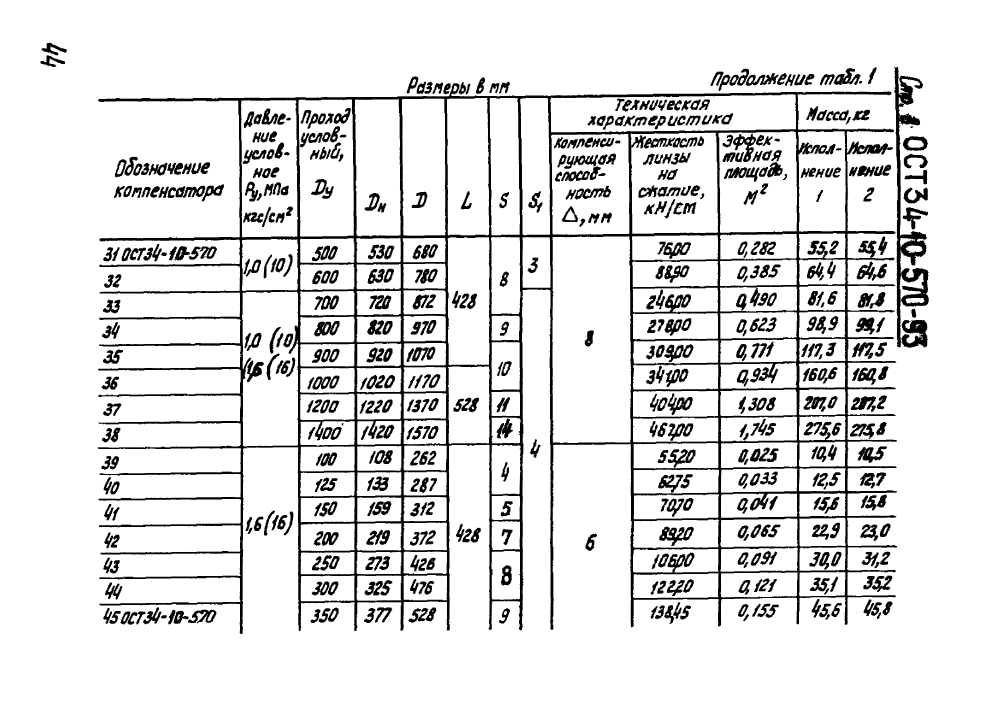 44
Размеры в мм
Продолжение табл. 1
ОСТ34-10-570-93
Обозначение компенсатора
Давление условное Ру, МПа кгс/см²
Проход условный, Dу
Dн
D
L
S
S₁
Техническая характеристика
Компенсирующая способность △, мм
Жесткость линзы на сжатие, кН/см
Эффективная площадь, м²
Масса, кг
Исполнение 1
Исполнение 2
31 ОСТ34-10-570 1,0 (10) 500 530 680 428 8 3 8 76,00 0,282 55,2 55,4
32 600 630 780 88,90 0,385 64,4 64,6
33 1,0 (10) (1,6 (16) 700 720 872 4 246,00 0,490 81,6 81,8
34 800 820 970 9 278,00 0,623 98,9 99,1
35 900 920 1070 10 309,00 0,771 117,3 117,5
36 1000 1020 1170 528 341,00 0,934 160,6 160,8
37 1200 1220 1370 11 404,00 1,308 207,0 207,2
38 1400 1420 1570 14 467,00 1,745 275,6 275,8
39 1,6 (16) 100 108 262 428 4 6 55,20 0,025 10,4 10,5
40 125 133 287 62,75 0,033 12,5 12,7
41 150 159 312 5 70,70 0,041 15,6 15,8
42 200 219 372 7 89,20 0,065 22,9 23,0
43 250 273 426 8 106,00 0,091 30,0 31,2
44 300 325 476 122,20 0,121 35,1 35,2
45 ОСТ34-10-570 350 377 528 9 138,45 0,155 45,6 45,8